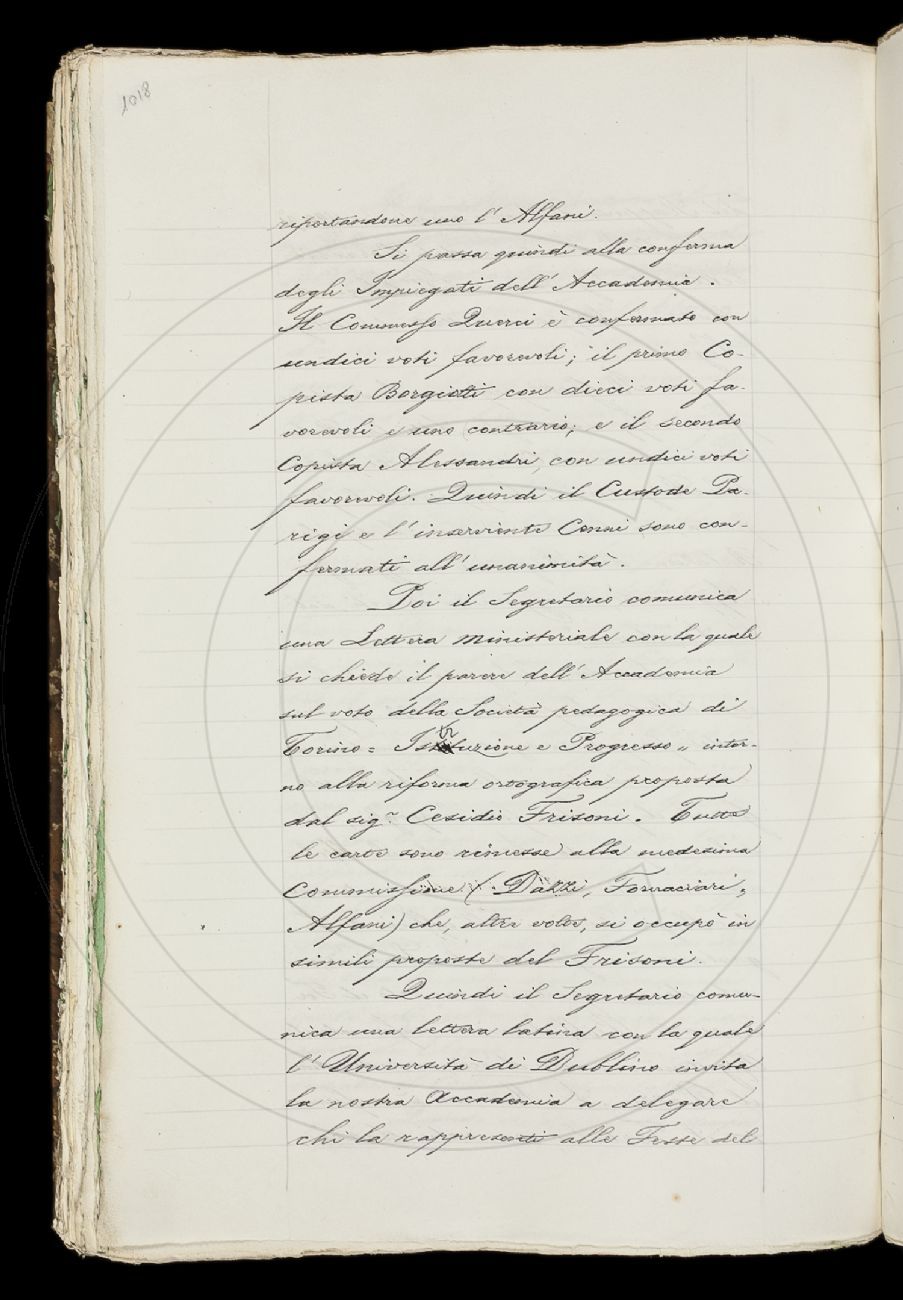 1018
riportandone uno l' Alfani.
Si passa quindi alla conferma
degli Impiegati dell' Accademia.
Il Commesso Querci è confermato con
undici voti favorevoli; il primo Co-
pista Bargiotti con dieci voti fa-
vorevoli e uno contrario; e il secondo
Copista Alessandri, con undici voti
favorevoli. Quindi il Custode Pa-
rigi e l' inserviente Conni sono con-
fermati all' unanimità.
Poi il Segretario comunica
una Lettera ministeriale con la quale
si chiede il parere dell' Accademia
sul voto della Società pedagogica di
Torino = Istruzione e Progresso „ intor-
no alla riforma ortografica proposta
dal sig.r Cesidio Frisoni. Tutte
le carte sono rimesse alla medesima
Commissione (Dazzi, Fornaciari,
Alfani) che, altre volte, si occupò in
simili proposte del Frisoni.
Quindi il Segretario comu-
nica una lettera latina con la quale
l' Università di Dublino invita
la nostra Accademia a delegare
chi la rappresenti alle Feste del